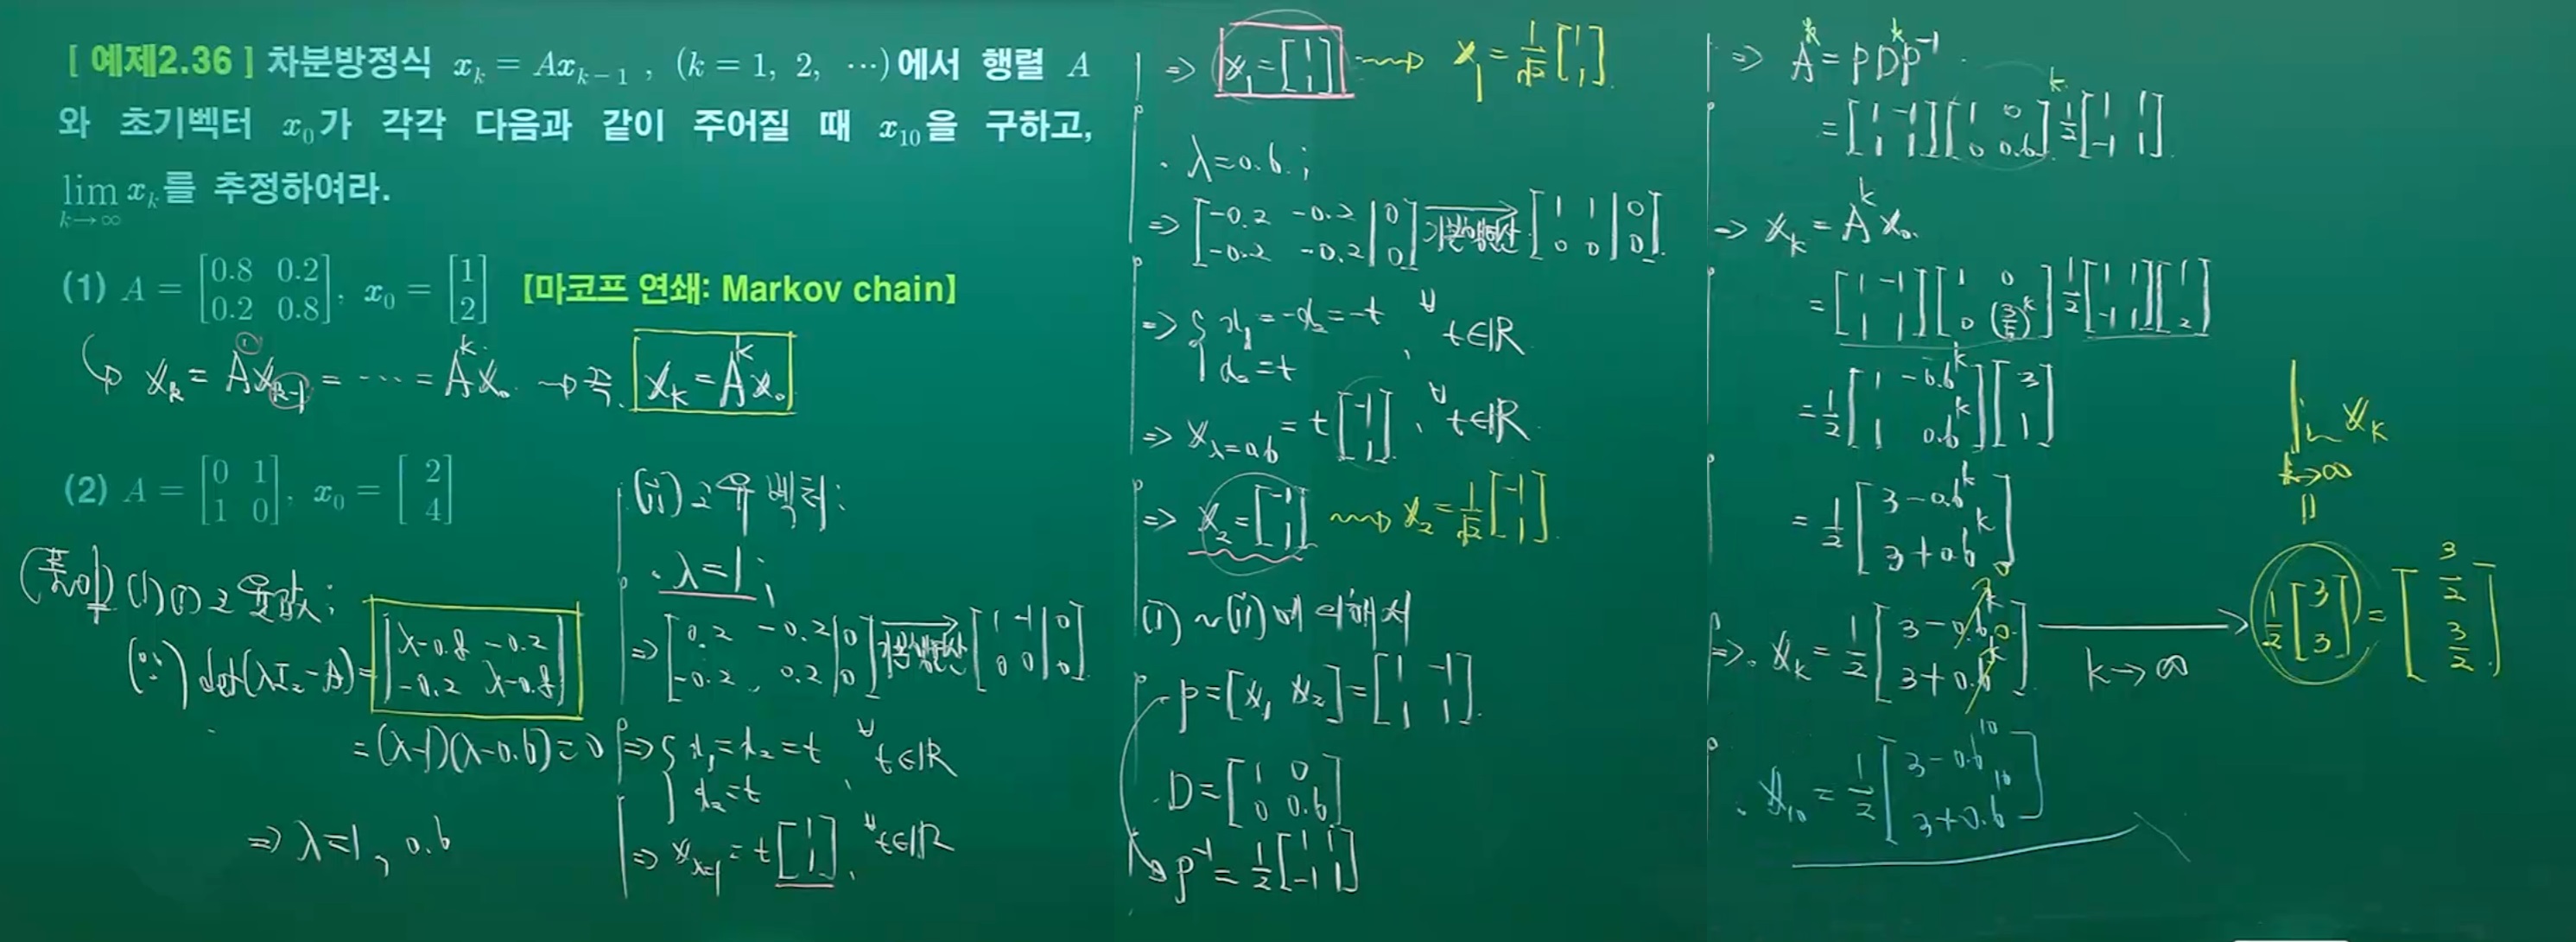 [ 예제2.36 ] 차분방정식 x_k = Ax_{k-1} , (k = 1, 2, ⋯)에서 행렬 A
와 초기벡터 x_0가 각각 다음과 같이 주어질 때 x_{10}을 구하고,
lim_{k→∞} x_k를 추정하여라.
(1) A = [0.8 0.2; 0.2 0.8], x_0 = [1; 2] [마코프 연쇄: Markov chain]
x_k = A^① x_{k-1} = ⋯ = A^k x_0 → 즉, x_k = A^k x_0
(2) A = [0 1; 1 0], x_0 = [2; 4]
(풀이) (1) (i) 고윳값;
(∵) det(λI_2 - A) = |λ-0.8 -0.2; -0.2 λ-0.8|
= (λ-1)(λ-0.6) = 0
⇒ λ = 1, 0.6
(ii) 고유벡터:
· λ = 1 ;
⇒ [0.2 -0.2 | 0; -0.2, 0.2 | 0] → 기본행연산 [1 -1 | 0; 0 0 | 0]
⇒ { x_1 = x_2 = t
x_2 = t , ∀t∈ℝ
⇒ x_{λ=1} = t [1; 1], ∀t∈ℝ
⇒ x_1 = [1; 1] ⇝ x_1 = 1/√2 [1; 1].
· λ = 0.6 ;
⇒ [-0.2 -0.2 | 0; -0.2 -0.2 | 0] → 기본행연산 [1 1 | 0; 0 0 | 0].
⇒ { x_1 = -x_2 = -t
x_2 = t , ∀t∈ℝ
⇒ x_{λ=0.6} = t [-1; 1], ∀t∈ℝ
⇒ x_2 = [-1; 1] ⇝ x_2 = 1/√2 [-1; 1].
(i) ~ (ii)에 의해서
P = [x_1 x_2] = [1 -1; 1 1].
D = [1 0; 0 0.6]
P^{-1} = 1/2 [1 1; -1 1]
⇒ A^k = P D^k P^{-1}.
= [1 -1; 1 1] [1 0; 0 0.6]^k 1/2 [1 1; -1 1].
⇒ x_k = A^k x_0.
= [1 -1; 1 1] [1 0; 0 (3/5)^k] 1/2 [1 1; -1 1] [1; 2]
= 1/2 [1 -0.6^k; 1 0.6^k] [3; 1]
= 1/2 [3 - 0.6^k; 3 + 0.6^k]
⇒. x_k = 1/2 [3 - 0.6^k; 3 + 0.6^k] → k→∞ 1/2 [3; 3] = [3/2; 3/2].
0
0
lim x_k
k→∞
||
∴ x_{10} = 1/2 [3 - 0.6^{10}; 3 + 0.6^{10}]